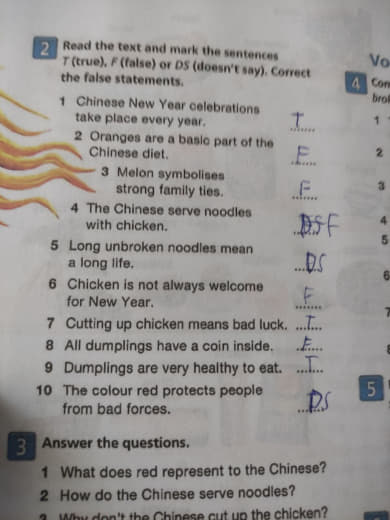 2 Read the text and mark the sentences
T (true), F (false) or DS (doesn't say). Correct
the false statements.
1 Chinese New Year celebrations
take place every year. T
2 Oranges are a basic part of the
Chinese diet. F
3 Melon symbolises
strong family ties. F
4 The Chinese serve noodles
with chicken. DSF
5 Long unbroken noodles mean
a long life. DS
6 Chicken is not always welcome
for New Year. F
7 Cutting up chicken means bad luck. T
8 All dumplings have a coin inside. F
9 Dumplings are very healthy to eat. T
10 The colour red protects people
from bad forces. DS
3 Answer the questions.
1 What does red represent to the Chinese?
2 How do the Chinese serve noodles?
3 Why don't the Chinese cut up the chicken?
Vo
4 Com
brol
1
2
3
4
5
6
7
5